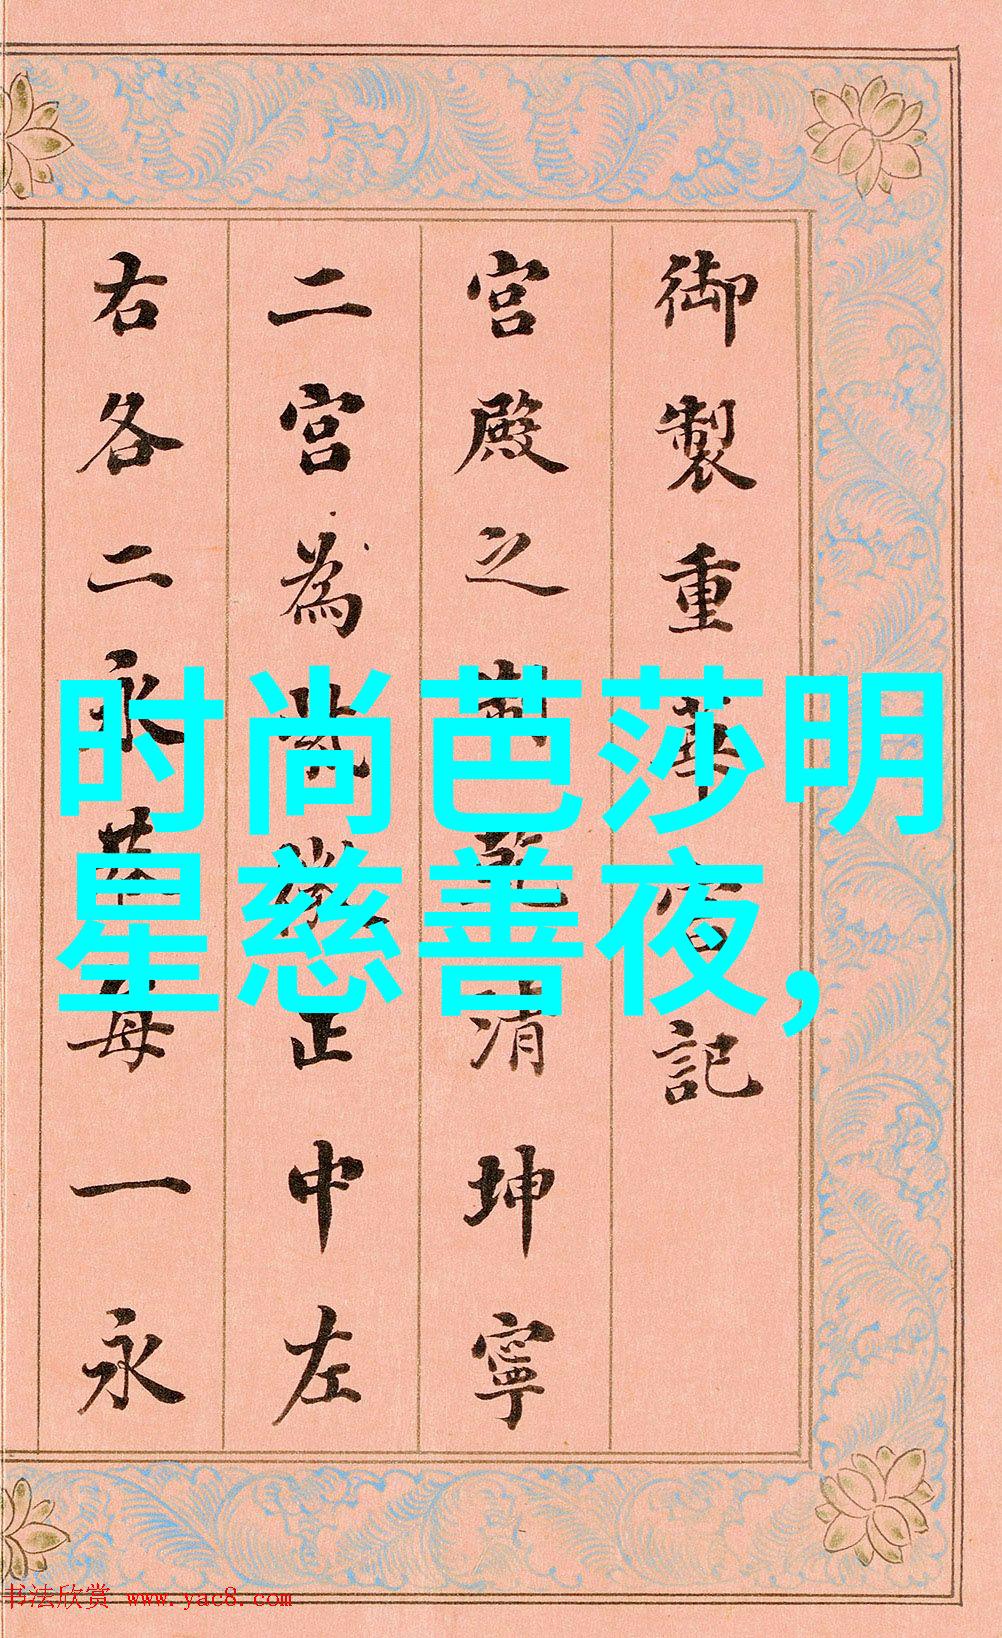 御製重華宮記
宮殿之制乾清坤寧
二宮為紫微正中左
右各二永巷每一永
时尚芭莎明
星慈善夜,
书法欣赏 www.yac8.com